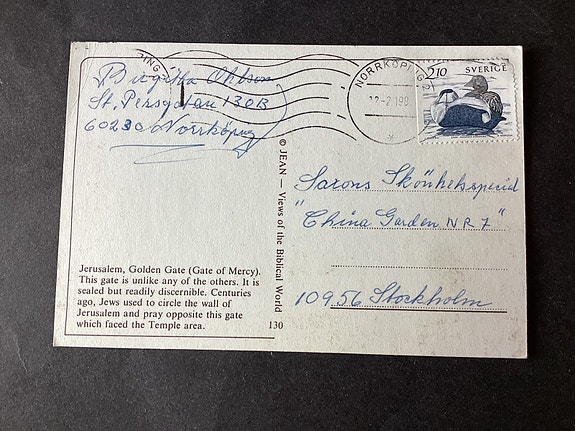 Birgitta Ohlson
St. Persgatan 130B
60230 Norrköping
NORRKÖPING
2.10 SVERIGE
© JEAN — Views of the Biblical World
Sarons Skönhetsspecial
"China Garden NR 7"
10956 Stockholm
Jerusalem, Golden Gate (Gate of Mercy).
This gate is unlike any of the others. It is
sealed but readily discernible. Centuries
ago, Jews used to circle the wall of
Jerusalem and pray opposite this gate
which faced the Temple area.
130